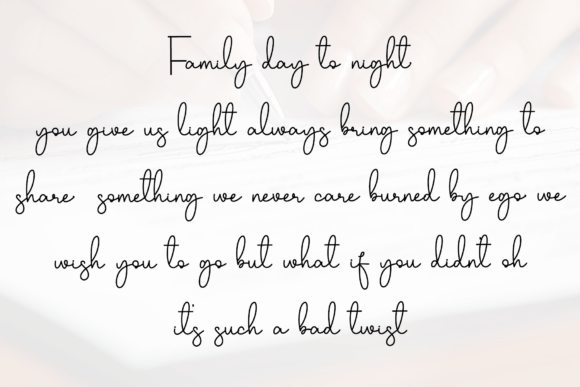 Family day to night
you give us light always bring something to
share something we never care burned by ego we
wish you to go but what if you didn't oh
it's such a bad twist